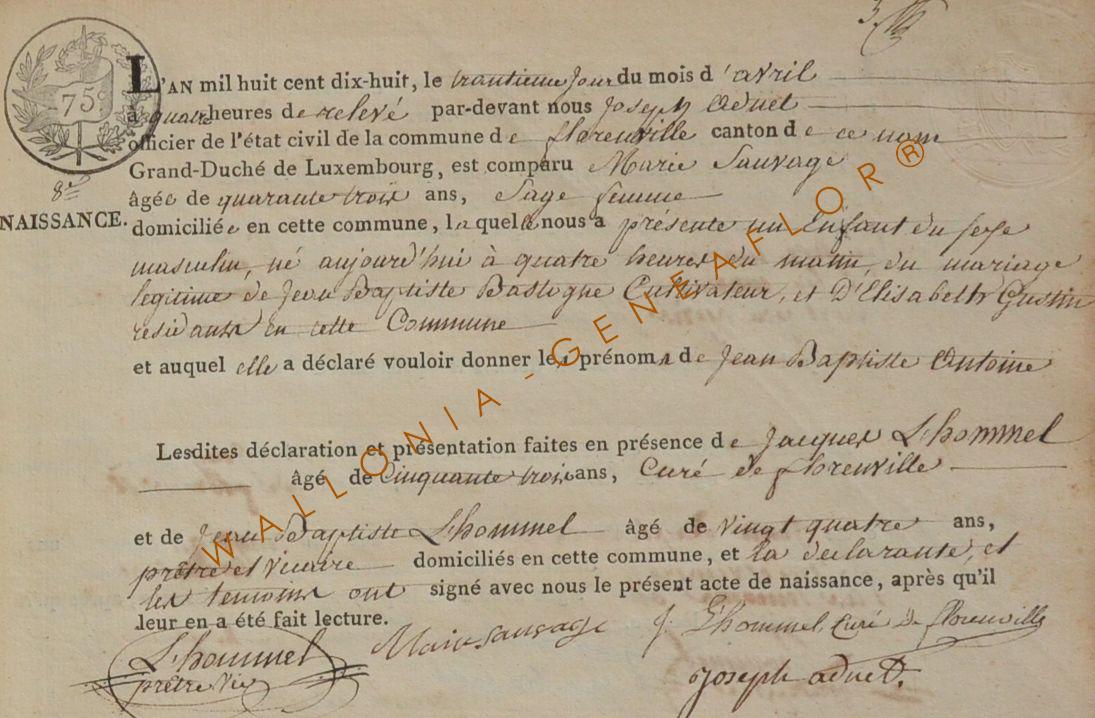 75c
L'AN mil huit cent dix-huit, le trantieme jour du mois d'avril
à quatre heures de relevé par-devant nous Joseph Aduet
officier de l'état civil de la commune de florenville canton de ce nom
Grand-Duché de Luxembourg, est comparu Marie Sauvage
âgée de quarante trois ans, Sage femme
8e
NAISSANCE.
domiciliée en cette commune, laquelle nous a présente un Enfant du sexe
masculin, né aujourd'hui à quatre heures du matin, du mariage
legitime de Jean Baptiste Bastogne Cultivateur, et D'Elisabeth Gustin
residants en cette Commune
et auquel elle a déclaré vouloir donner les prénoms de Jean Baptiste Antoine
Lesdites déclaration et présentation faites en présence de Jacques L'hommel
âgé de Cinquante trois ans, Curé de florenville
et de Jean Baptiste L'hommel âgé de vingt quatre ans,
prêtre et vicaire domiciliés en cette commune, et la declarante, et
les temoins ont signé avec nous le présent acte de naissance, après qu'il
leur en a été fait lecture.
L'hommel Marie Sauvage J. L'hommel, Curé De florenville
prêtre vic Joseph aduet.
WALLONIA-GENEAFLOR®